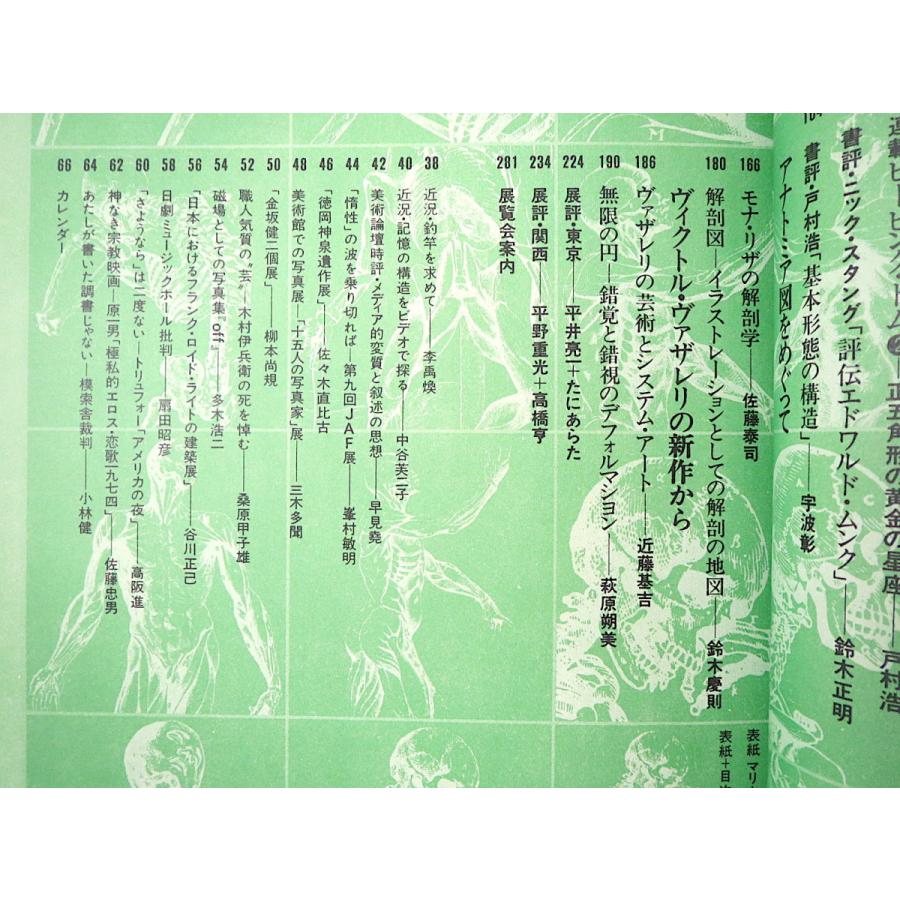 連載
正五角形の黄金の星座——戸村浩
書評・ニック・スタング「評伝エドワルド・ムンク」——鈴木正明
書評・戸村浩「基本形態の構造」——宇波彰
アナトミア図をめぐって
166 モナ・リザの解剖学——佐藤泰司
180 解剖図—イラストレーションとしての解剖の地図——鈴木慶則
ヴィクトル・ヴァザレリの新作から
186 ヴァザレリの芸術とシステム・アート——近藤基吉
190 無限の円—錯覚と錯視のデフォルマシヨン——萩原朔美
224 展評・東京——平井亮一+たにあらた
234 展評・関西——平野重光+高橋亨
281 展覧会案内
38 近況・釣竿を求めて——李禹煥
40 近況・記憶の構造をビデオで探る——中谷芙二子
42 美術論壇時評・メディア的変質と叙述の思想——早見堯
44 「惰性」の波を乗り切れば—第九回JAF展——峯村敏明
46 「徳岡神泉遺作展」——佐々木直比古
48 美術館での写真展—「十五人の写真家」展——三木多聞
50 「金坂健二個展」——柳本尚規
52 職人気質の〝芸〟—木村伊兵衛の死を悼む——桑原甲子雄
54 磁場としての写真集『off』——多木浩二
56 「日本におけるフランク・ロイド・ライトの建築展」——谷川正己
58 日劇ミュージックホール批判——扇田昭彦
60 「さようなら」は二度ない—トリュフォー「アメリカの夜」——高阪進
62 神なき宗教映画—原一男「極私的エロス・恋歌一九七四」——佐藤忠男
64 あたしが書いた調書じゃない—模索舎裁判——小林健
66 カレンダー
表紙 マリ
表紙+目次